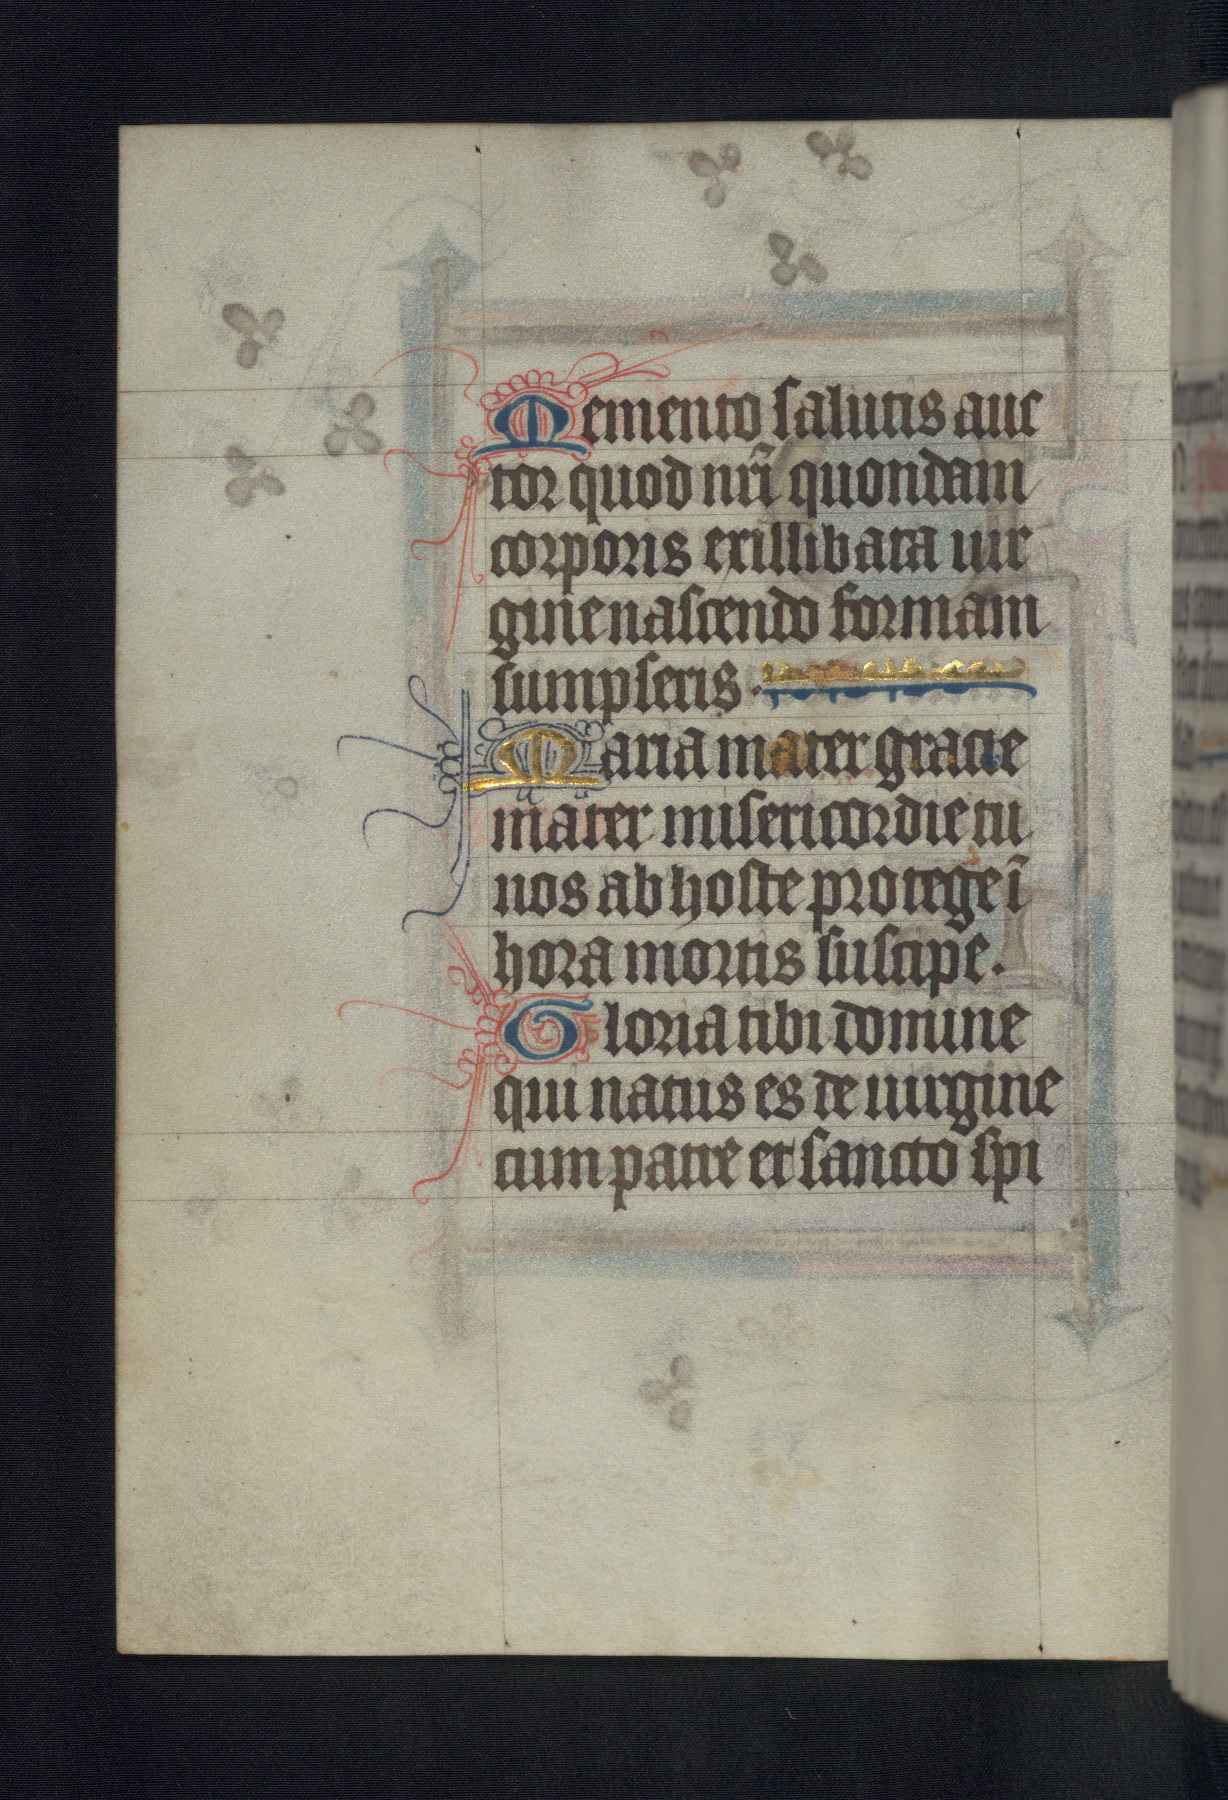 Memento salutis auc
tor quod nrĩ quondam
corporis exillibata uir
gine nascendo formam
sumpseris.
Maria mater gracie
mater misericordie tu
nos ab hoste protege ĩ
hora mortis suscipe.
Gloria tibi domine
qui natus es de uirgine
cum patre et sancto spi